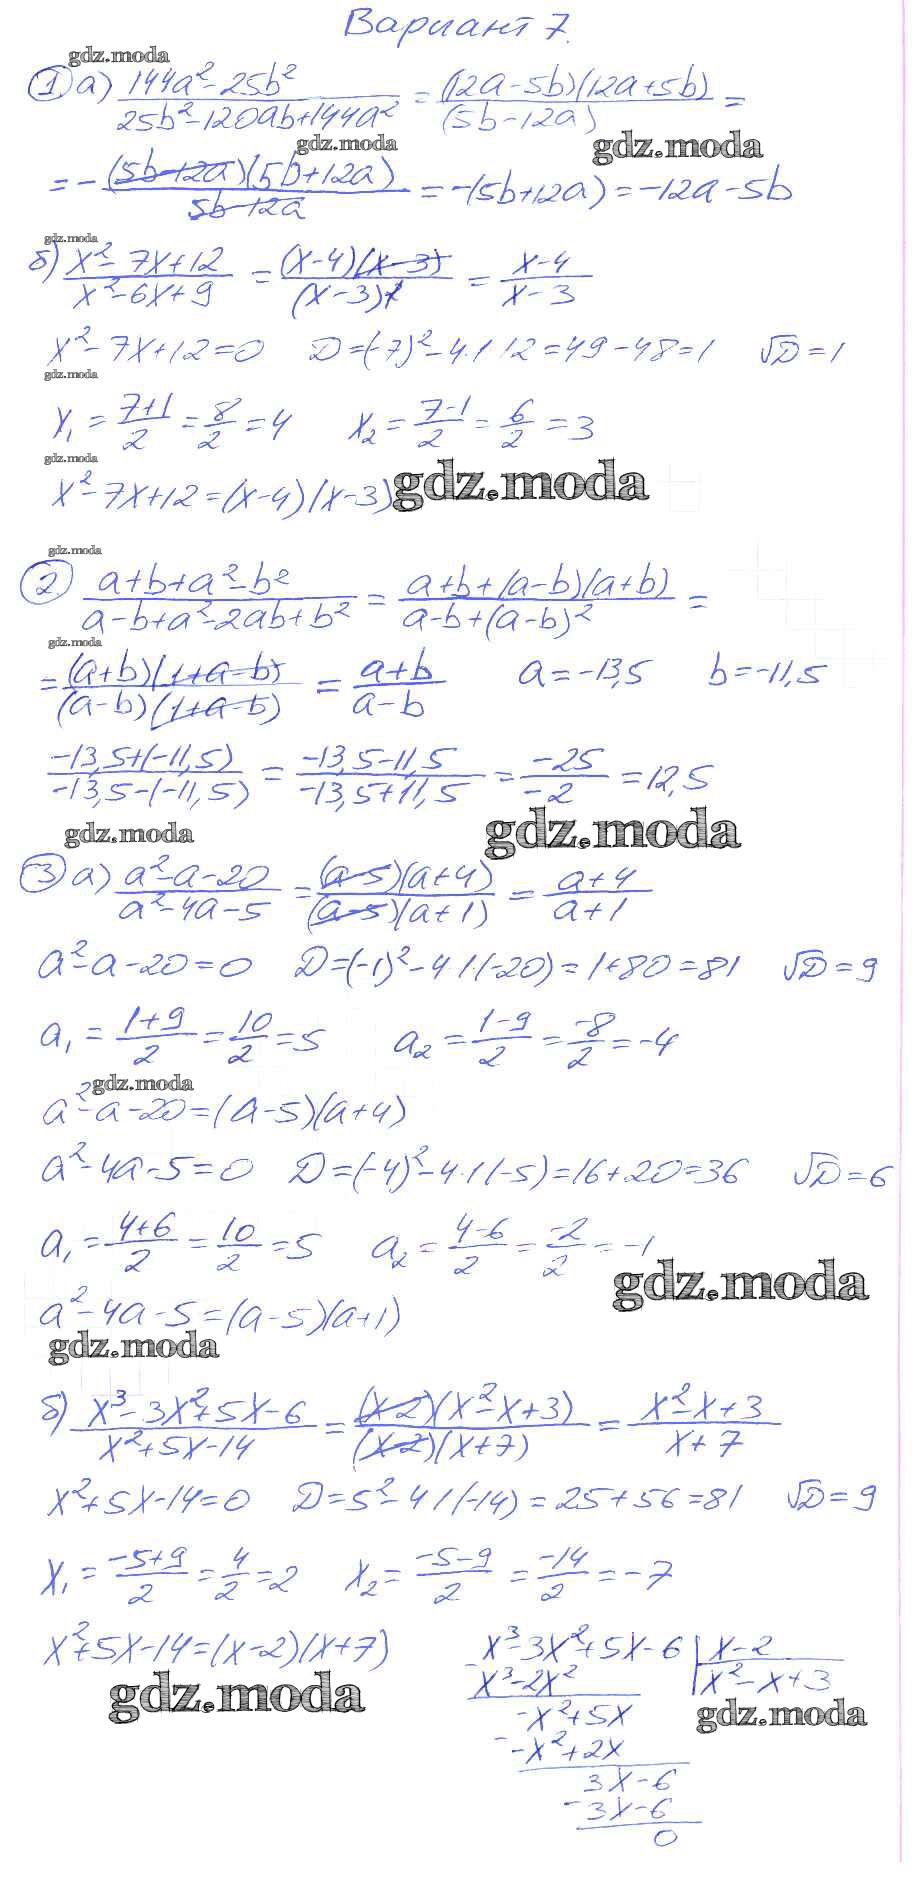 Вариант 7.
gdz.moda
① а) (144a² - 25b²)/(25b² - 120ab + 144a²) = ((12a - 5b)(12a + 5b))/(5b - 12a) =
gdz.moda gdz.moda
= - ((5b - 12a)(5b + 12a))/(5b - 12a) = -(5b + 12a) = -12a - 5b
gdz.moda
б) (x² - 7x + 12)/(x² - 6x + 9) = ((x - 4)(x - 3))/(x - 3)² = (x - 4)/(x - 3)
x² - 7x + 12 = 0 D = (-7)² - 4·1·12 = 49 - 48 = 1 √D = 1
gdz.moda
x₁ = (7+1)/2 = 8/2 = 4 x₂ = (7-1)/2 = 6/2 = 3
gdz.moda
x² - 7x + 12 = (x - 4)(x - 3) gdz.moda
gdz.moda
② (a + b + a² - b²)/(a - b + a² - 2ab + b²) = (a + b + (a - b)(a + b))/(a - b + (a - b)²) =
gdz.moda
= ((a + b)(1 + a - b))/((a - b)(1 + a - b)) = (a + b)/(a - b) a = -13,5 b = -11,5
(-13,5 + (-11,5))/(-13,5 - (-11,5)) = (-13,5 - 11,5)/(-13,5 + 11,5) = -25/-2 = 12,5
gdz.moda gdz.moda
③ а) (a² - a - 20)/(a² - 4a - 5) = ((a - 5)(a + 4))/((a - 5)(a + 1)) = (a + 4)/(a + 1)
a² - a - 20 = 0 D = (-1)² - 4·1·(-20) = 1 + 80 = 81 √D = 9
a₁ = (1+9)/2 = 10/2 = 5 a₂ = (1-9)/2 = -8/2 = -4
gdz.moda
a² - a - 20 = (a - 5)(a + 4)
a² - 4a - 5 = 0 D = (-4)² - 4·1·(-5) = 16 + 20 = 36 √D = 6
a₁ = (4+6)/2 = 10/2 = 5 a₂ = (4-6)/2 = -2/2 = -1
gdz.moda
a² - 4a - 5 = (a - 5)(a + 1)
gdz.moda
б) (x³ - 3x² + 5x - 6)/(x² + 5x - 14) = ((x - 2)(x² - x + 3))/((x - 2)(x + 7)) = (x² - x + 3)/(x + 7)
x² + 5x - 14 = 0 D = 5² - 4·1·(-14) = 25 + 56 = 81 √D = 9
x₁ = (-5+9)/2 = 4/2 = 2 x₂ = (-5-9)/2 = -14/2 = -7
x² + 5x - 14 = (x - 2)(x + 7)
gdz.moda
x³ - 3x² + 5x - 6 | x - 2
x³ - 2x² x² - x + 3
gdz.moda
-x² + 5x
- -x² + 2x
3x - 6
- 3x - 6
0